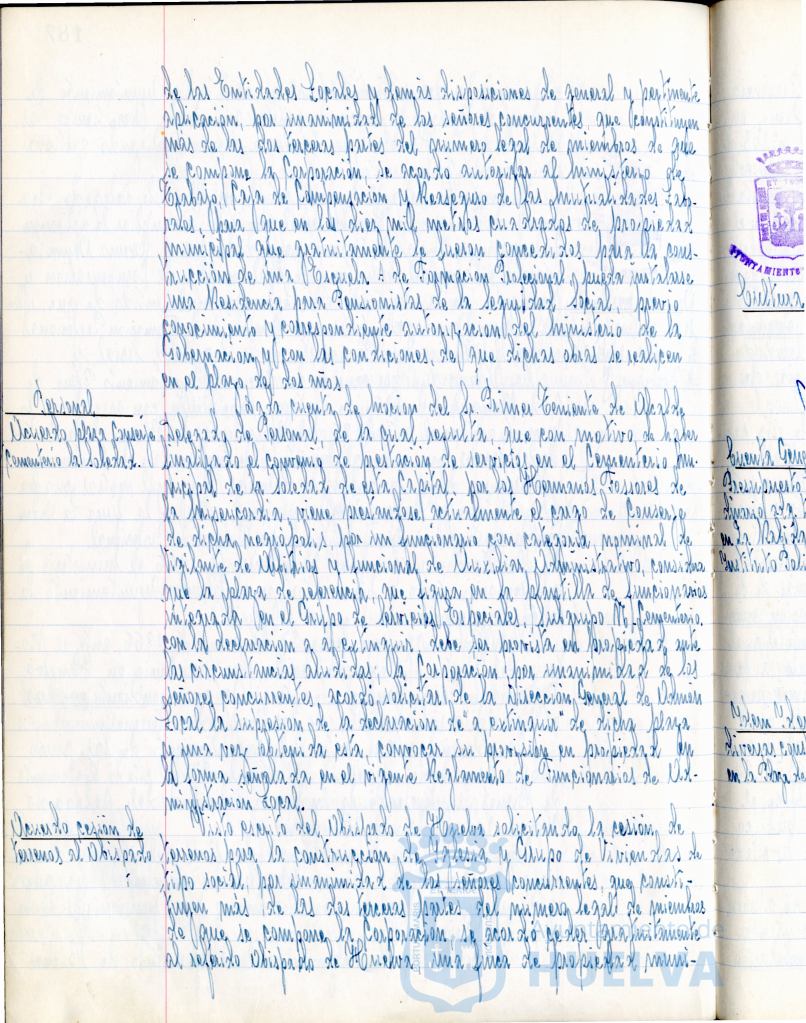 de las Entidades Locales y demás disposiciones de general y pertinente
aplicación, por unanimidad de los señores concurrentes, que constituyen
más de las dos terceras partes del número legal de miembros de que
se compone la Corporación, se acordó autorizar al Ministerio de
Trabajo, (Caja de Compensación y Reaseguro de las Mutualidades Labo-
rales, para que en los diez mil metros cuadrados de propiedad
municipal que gratuitamente le fueron concedidos para la cons-
trucción de una Escuela de Formación Profesional, pueda instalarse
una Residencia para Pensionistas de la Seguridad Social, previo
conocimiento y correspondiente autorización del Ministerio de la
Gobernación y con las condiciones, de que dichas obras se realicen
en el plazo de dos años.
Personal
Acuerdo plaza Conserje
Cementerio la Soledad.
Dada cuenta de moción del Sr. Primer Teniente de Alcalde
Delegado de Personal, de la qual resulta, que con motivo de haber
finalizado el convenio de prestación de servicios en el Cementerio mu-
nicipal de la Soledad de esta Capital por los Hermanos Fossores de
la Misericordia viene prestándose actualmente el cargo de Conserje
de dicha necrópolis, por un funcionario con categoría nominal de
Vigilante de Arbitrios y funcional de Auxiliar Administrativo, considera
que la plaza de referencia, que figura en la plantilla de funcionarios
integrada en el Grupo de Servicios Especiales, Subgrupo Cementerio,
con la declaración a extinguir, debe ser provista en propiedad, ante
las circunstancias aludidas, la Corporación, por unanimidad de los
señores concurrentes acordó, solicitar de la Dirección General de Admon
Local la supresión de la declaración de "a extinguir" de dicha plaza
y una vez obtenida esta, convocar su provisión en propiedad en
la forma señalada en el vigente Reglamento de Funcionarios de Ad-
ministración Local.
Acuerdo cesión de
terrenos al Obispado
Visto escrito del Obispado de Huelva solicitando, la cesión, de
terrenos para la construcción de Iglesia y Grupo de Viviendas de
tipo social, por unanimidad de los señores concurrentes, que consti-
tuyen más de las dos terceras partes del número legal de miembros
de que se compone la Corporación, se acordó ceder gratuitamente
al referido Obispado de Huelva, una finca de propiedad muni-
AYUNTAMIENTO
Cultura
Cuenta Gene
Presupuesto
en la Rábida
Idem Idem
diversas
en la Plaza de
Ayuntamiento de
HUELVA